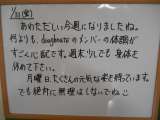 2/11(金)
あわただしい今週になりましたね。
何よりも、doughnutsのメンバーの体調が
すごく心配です。週末少しでも身体を
休めて下さい。
月曜日、たくさんの元気な姿を待ってます。
でも絶対に無理はしないでね